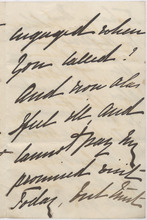 engaged when
You called?
And now alas
I feel ill, and
cannot pay my
promised visit
Today, but trust